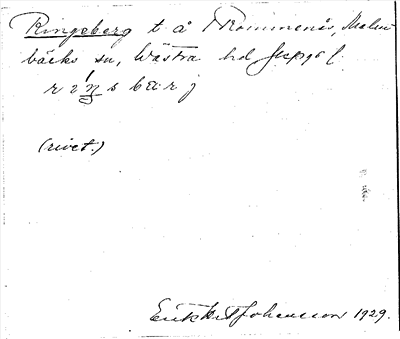 Ringeberg t å Trommenäs, Malm
bäcks sn, Västra hd Jkpgs l.
(rivet.)
Erik Johansson 1929.